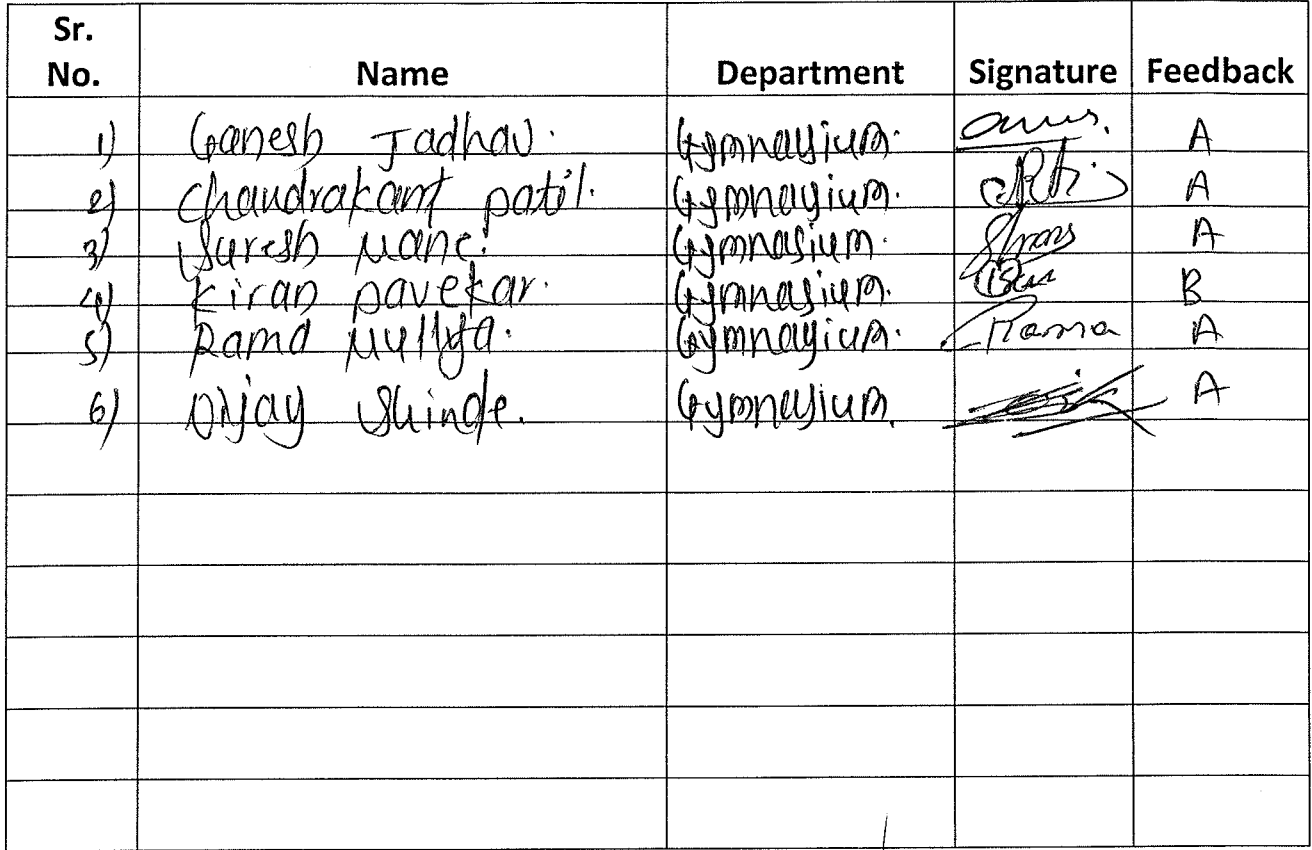 Sr. No. Name Department Signature Feedback
1) Ganesh Jadhav. Gymnasium. A
2) Chandrakant patil. Gymnasium. A
3) Suresh Mane. Gymnasium. A
4) Kiran Pavekar. Gymnasium. B
5) Rama Mullya. Gymnasium. Rama A
6) Shinde. Gymnasium. A